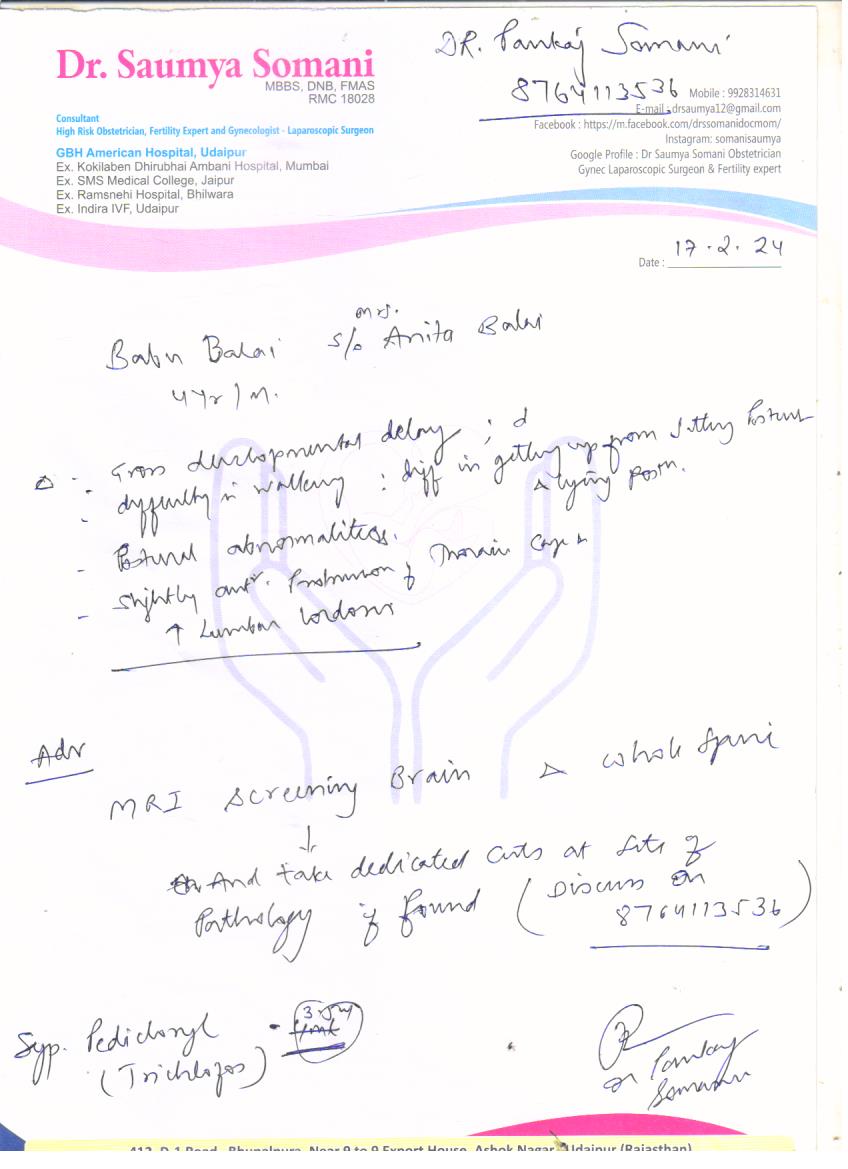 DR. Pankaj Somani
8764113536
Dr. Saumya Somani
MBBS, DNB, FMAS
RMC 18028
Consultant
High Risk Obstetrician, Fertility Expert and Gynecologist - Laparoscopic Surgeon
GBH American Hospital, Udaipur
Ex. Kokilaben Dhirubhai Ambani Hospital, Mumbai
Ex. SMS Medical College, Jaipur
Ex. Ramsnehi Hospital, Bhilwara
Ex. Indira IVF, Udaipur
Mobile : 9928314631
E-mail : drsaumya12@gmail.com
Facebook : https://m.facebook.com/drssomanidocmom/
Instagram: somanisaumya
Google Profile : Dr Saumya Somani Obstetrician
Gynec Laparoscopic Surgeon & Fertility expert
Date : 17.2.24
Babu Balai s/o Mrs. Anita Balai
4 Yr / M.
Δ - Gross developmental delay ;
- difficulty in walking ; diff in getting up from sitting Posture
& lying posn.
- Postural abnormalities.
- slightly antr. Protrusion of Thoracic Cage &
↑ Lumbar lordosis
Adv
MRI Screening Brain & whole Spine
↓
And take dedicated cuts at site of
Pathology if found (Discuss on
8764113536)
Syp. Pedicloryl
(Trichlofos)
Dr Pankaj
Somani
412, D-1 Road, Bhupalpura, Near 9 to 9 Export House, Ashok Nagar, Udaipur (Rajasthan)